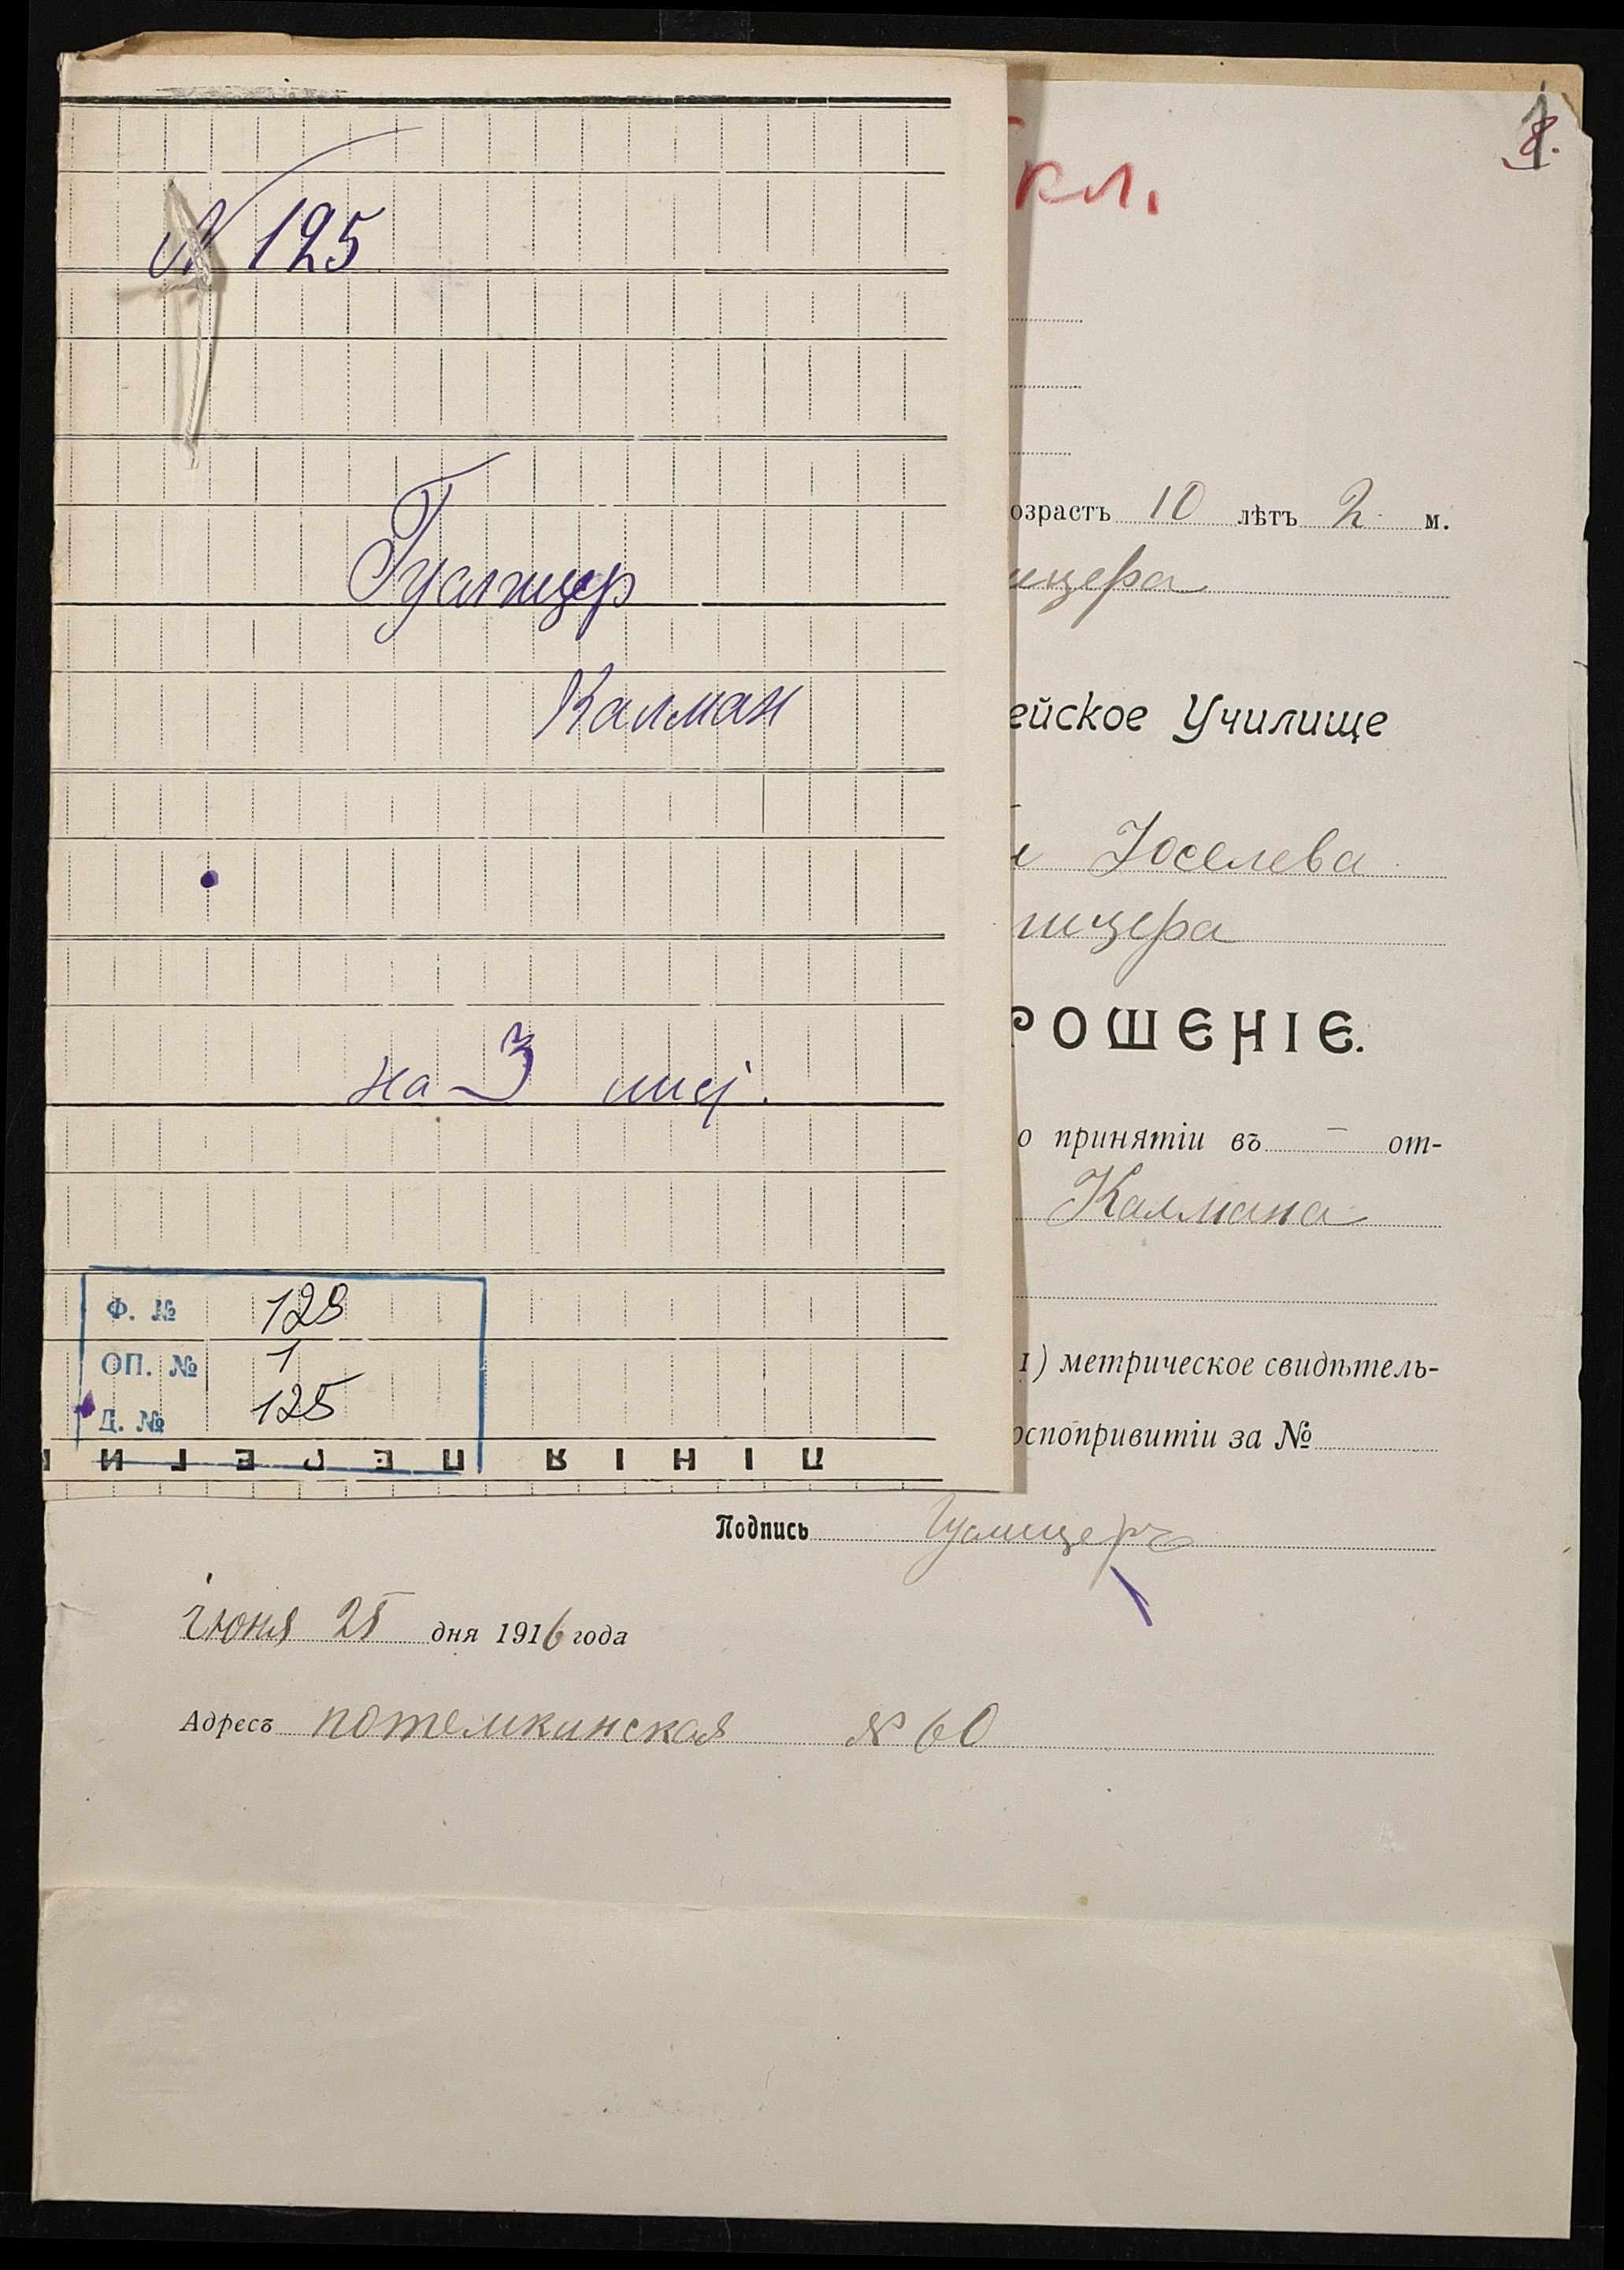 № 125
Гуалицер
Калман
на 3 лис.
Ф. № 128
ОП. № 1
Д. № 125
кл.
8.
озрастъ 10 лѣтъ 2 м.
ицера
ейское Училище
Іоселева
ицера
РОШЕНІЕ.
о принятіи въ — от-
Калмана
1) метрическое свидѣтель-
оспопривитіи за №
Подпись Гуалицеръ
Іюня 25 дня 1916 года
Адресъ потемкинская № 60